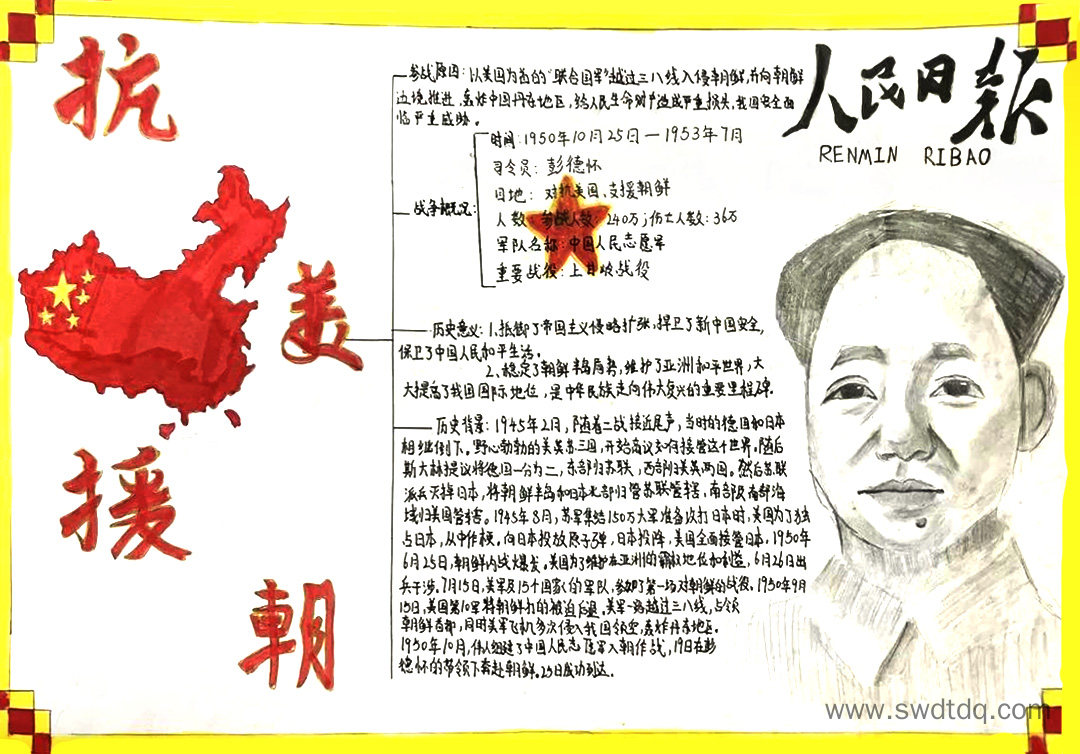 抗
美
援
朝
人民日报
RENMIN RIBAO
参战原因：以美国为首的“联合国军”越过三八线入侵朝鲜，并向朝鲜
边境推进，轰炸中国丹东地区，给人民生命财产造成严重损失，我国安全面
临严重威胁。
战争概况：
时间：1950年10月25日—1953年7月
司令员：彭德怀
目地：对抗美国、支援朝鲜
人数：参战人数：240万；伤亡人数：36万
军队名称：中国人民志愿军
重要战役：上甘岭战役
历史意义：1、抵御了帝国主义侵略扩张，捍卫了新中国安全，
保卫了中国人民和平生活。
2、稳定了朝鲜半岛局势，维护了亚洲和平世界，大
大提高了我国国际地位，是中华民族走向伟大复兴的重要里程碑。
历史背景：1945年2月，随着二战接近尾声，当时的德国和日本
相继倒下。野心勃勃的美英苏三国，开始商议如何接管这个世界。随后
斯大林提议将德国一分为二，东部归苏联，西部归美英两国。然后苏联
派兵灭掉日本，将朝鲜半岛和日本北部归管苏联管辖，南部及南部海
域归美国管辖。1945年8月，苏军集结150万大军准备攻打日本时，美国为了独
占日本，从中作梗。向日本投放原子弹，日本投降，美国全面接管日本。1950年
6月25日，朝鲜内战爆发。美国为了维护在亚洲的霸权地位和利益，6月26日出
兵干涉。7月15日，美军及15个国家的军队，参加了第一场对朝鲜的战役。1950年9月
15日，美国第10军将朝鲜打的被迫后退。美军一路越过三八线，占领
朝鲜首都，同时美军飞机多次侵入我国领空，轰炸丹东地区。
1950年10月，伟人组建了中国人民志愿军入朝作战，19日在彭
德怀的带领下奔赴朝鲜。25日成功到达。
www.swdtdq.com